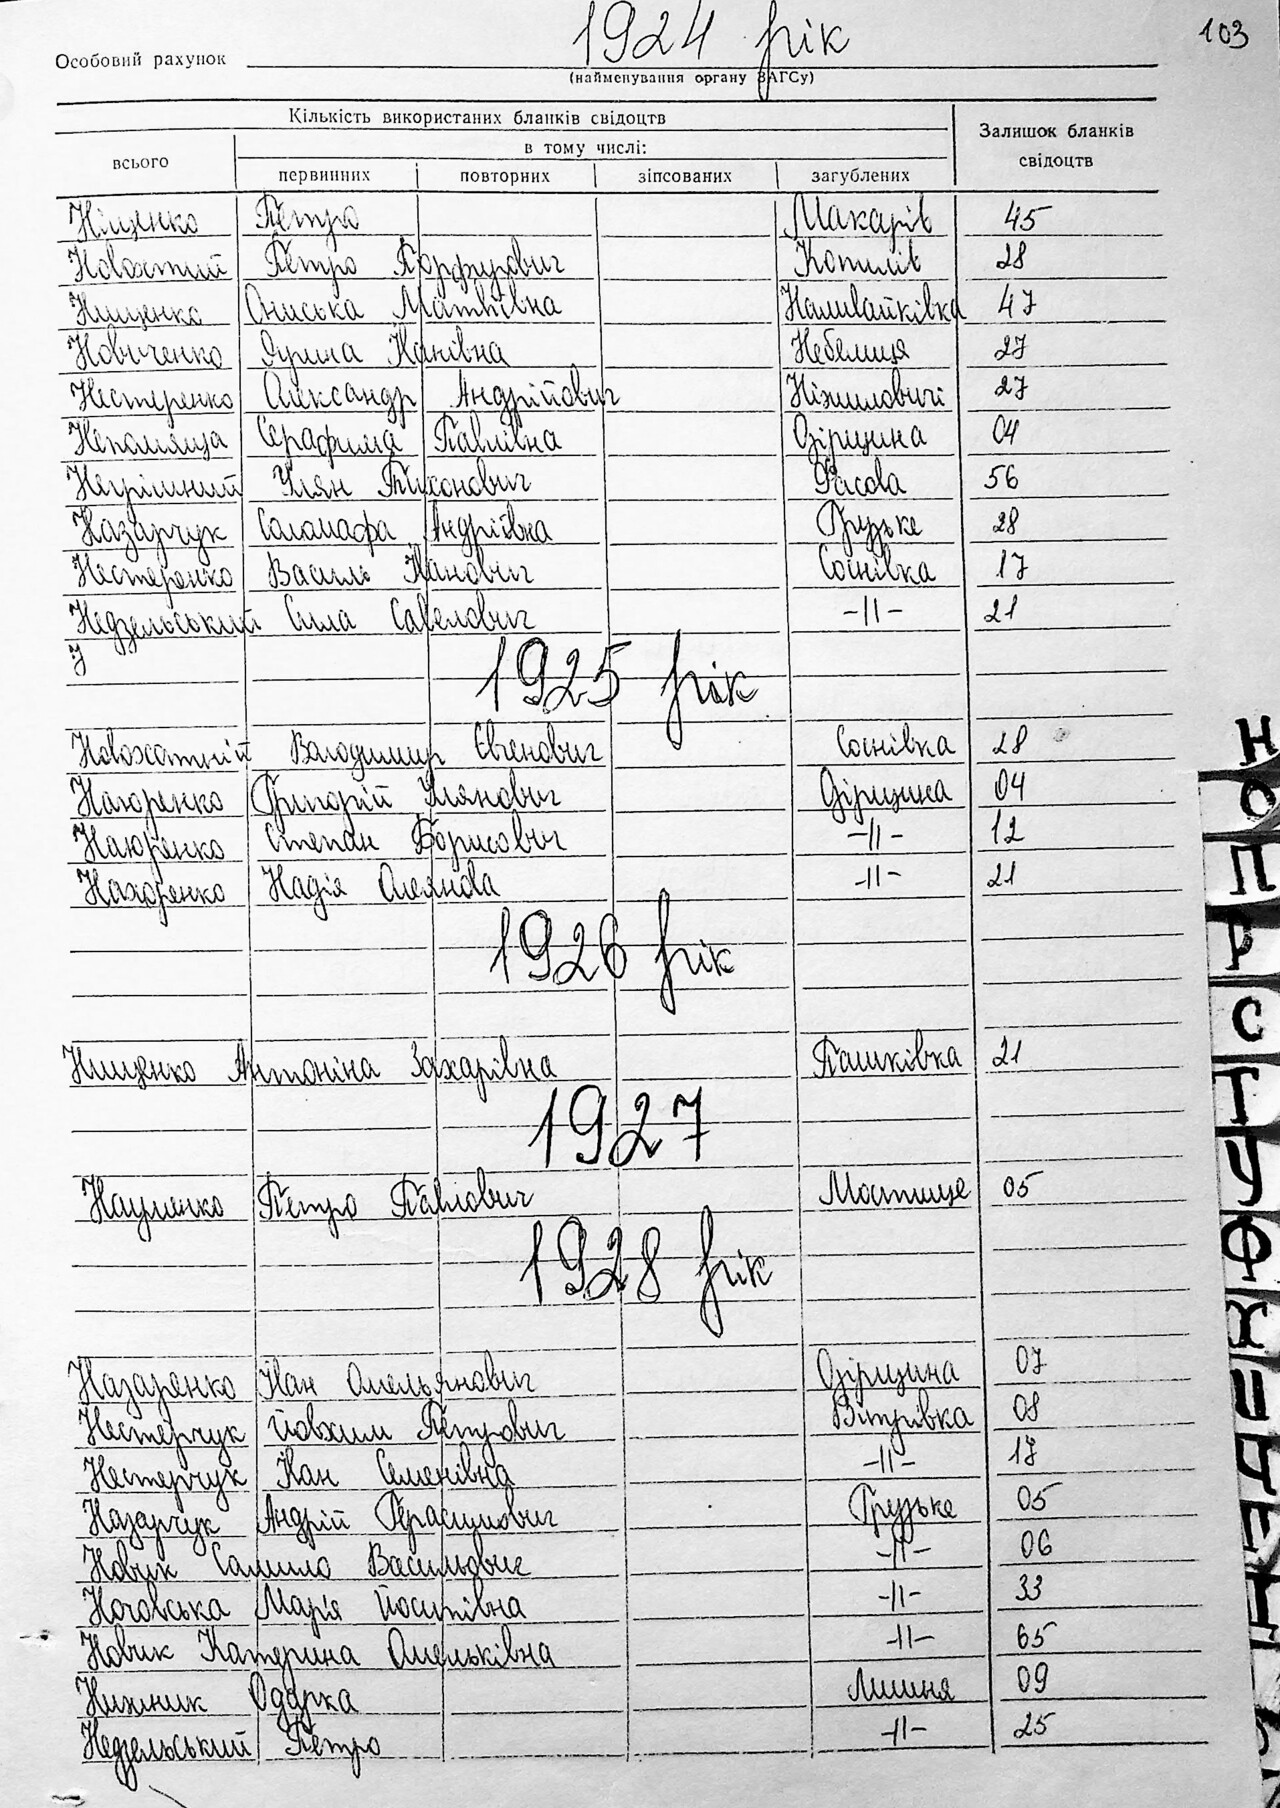 103
1924 рік
Особовий рахунок
(найменування органу ЗАГСу)
Кількість використаних бланків свідоцтв
Залишок бланків свідоцтв
всього
в тому числі:
первинних повторних зіпсованих загублених
Ніценко Петро Макарів 45
Новохатний Петро Порфирович Копилів 28
Нищенко Ониська Матвіївна Наливайківка 47
Новиченко Ярина Іванівна Небелиця 27
Нестеренко Александр Андрійович Ніжиловичі 27
Непомяща Серафима Павлівна Озірщина 04
Негрішний Улян Тихонович Фасова 56
Назарчук Соломафа Андріївна Грузьке 28
Нестеренко Василь Іванович Соснівка 17
Недзельський Сила Савелович -//- 21
1925 рік
Новохатній Володимир Євгенович Соснівка 28
Григорій Улянович Озірщина 04
Степан Борисович -//- 12
Надія -//- 21
1926 рік
Нищенко Антоніна Захарівна Пашківка 21
1927
Науменко Петро Павлович Мостище 05
1928 рік
Назаренко Іван Омельянович Озірщина 07
Нестерчук Йовхим Петрович Вітрівка 08
Нестерчук Іван Семенівна -//- 17
Назарчук Андрій Герасимович Грузьке 05
Новик Самило Васильович -//- 06
Ночовська Марія Йосипівна -//- 33
Новик Катерина Омельківна -//- 65
Нижник Одарка Лишня 09
Недзельський Петро -//- 25
Н
О
П
Р
С
Т
У
Ф
Х